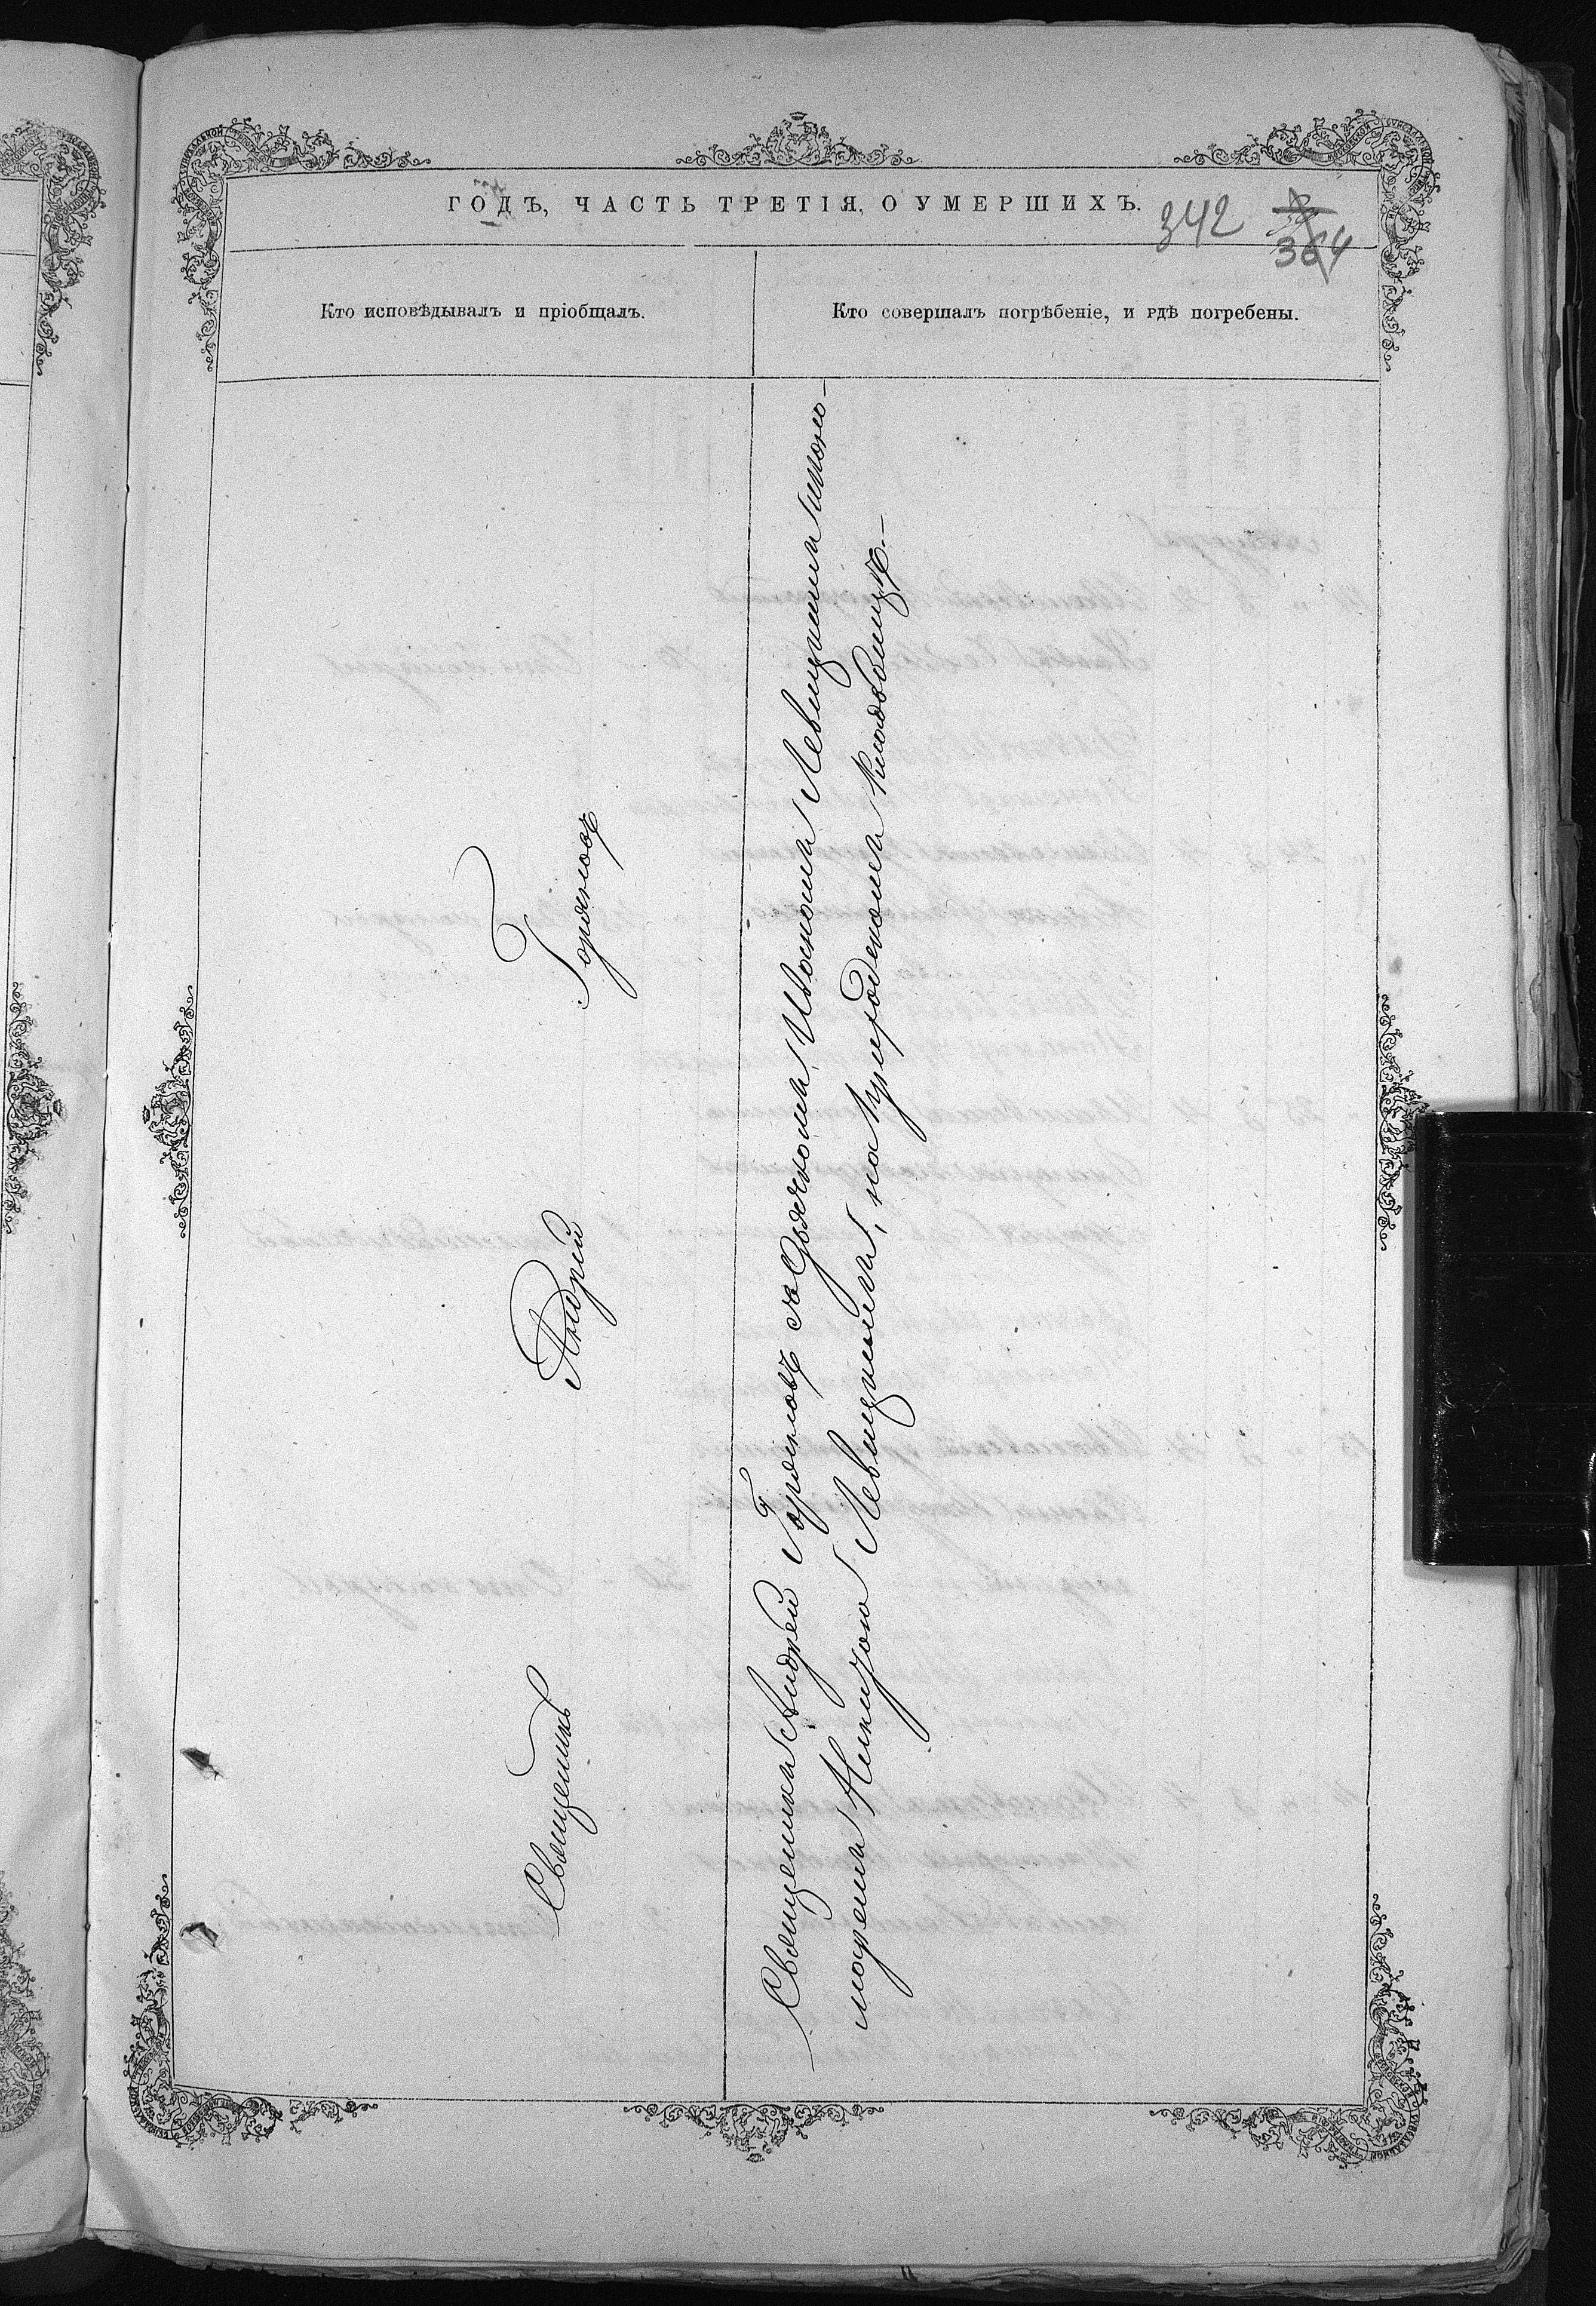 ГОДЪ, ЧАСТЬ ТРЕТІЯ, О УМЕРШИХЪ.
342
364
Кто исповѣдывалъ и пріобщалъ.
Кто совершалъ погрѣбеніе, и гдѣ погребены.
Священникъ Андрей Горяновъ
Священникъ Андрей Горяновъ съ Дьячкомъ Иваномъ Левицкимъ и поно-
маремъ Никитою Левицкимъ, на приходскомъ кладбищѣ.